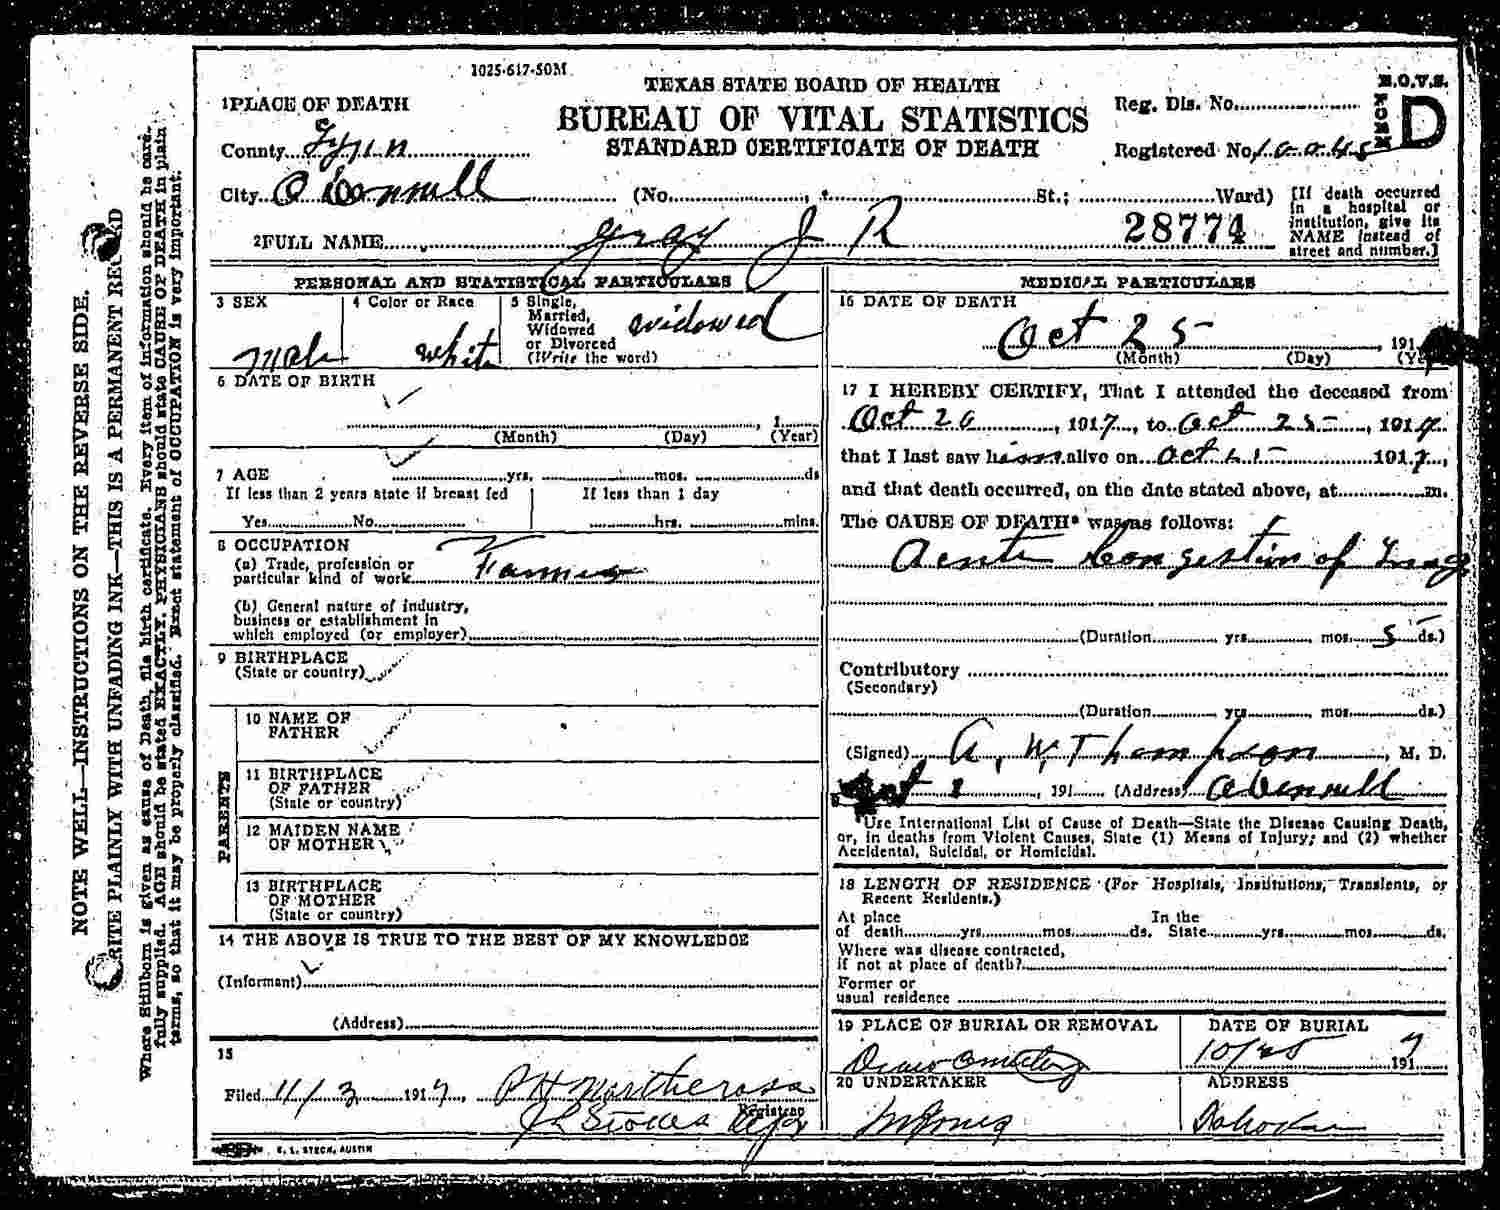 1025-617-50M
TEXAS STATE BOARD OF HEALTH
BUREAU OF VITAL STATISTICS
STANDARD CERTIFICATE OF DEATH
B.O.V.S.
FORM D
Reg. Dis. No.
Registered No.
1 PLACE OF DEATH
County Lynn
City O'Donnell (No. , St.; Ward)
[If death occurred in a hospital or institution, give its NAME instead of street and number.]
28774
2 FULL NAME Gray J R
PERSONAL AND STATISTICAL PARTICULARS
3 SEX
Male
4 Color or Race
White
5 Single, Married, Widowed or Divorced (Write the word)
Widowed
6 DATE OF BIRTH
, 1
(Month) (Day) (Year)
7 AGE yrs. mos. ds
If less than 2 years state if breast fed
Yes No
If less than 1 day
hrs. mins.
8 OCCUPATION
(a) Trade, profession or
particular kind of work Farmer
(b) General nature of industry,
business or establishment in
which employed (or employer)
9 BIRTHPLACE
(State or country)
PARENTS
10 NAME OF
FATHER
11 BIRTHPLACE
OF FATHER
(State or country)
12 MAIDEN NAME
OF MOTHER
13 BIRTHPLACE
OF MOTHER
(State or country)
14 THE ABOVE IS TRUE TO THE BEST OF MY KNOWLEDGE
(Informant)
(Address)
15
Filed 11/3 1917,
Registrar
E. L. STECK, AUSTIN
MEDICAL PARTICULARS
16 DATE OF DEATH
Oct 25 , 191
(Month) (Day)
17 I HEREBY CERTIFY, That I attended the deceased from
Oct 20 , 1917, to Oct 25 , 1917
that I last saw him alive on Oct 1917,
and that death occurred, on the date stated above, at m.
The CAUSE OF DEATH* was as follows:
Acute Congestion of Lung
(Duration yrs. mos. 5 ds.)
Contributory
(Secondary)
(Duration yrs. mos. ds.)
(Signed) A. W. Thompson, M. D.
1 , 191 (Address) O'Donnell
*Use International List of Cause of Death—State the Disease Causing Death,
or, in deaths from Violent Causes, State (1) Means of Injury; and (2) whether
Accidental, Suicidal, or Homicidal.
18 LENGTH OF RESIDENCE (For Hospitals, Institutions, Transients, or
Recent Residents.)
At place In the
of death yrs. mos. ds. State yrs. mos. ds.
Where was disease contracted,
if not at place of death?
Former or
usual residence
19 PLACE OF BURIAL OR REMOVAL
Draw Cemetery
DATE OF BURIAL
10/25 1917
20 UNDERTAKER
ADDRESS
Tahoka
NOTE WELL—INSTRUCTIONS ON THE REVERSE SIDE.
WRITE PLAINLY WITH UNFADING INK—THIS IS A PERMANENT RECORD
Where Stillborn is given as cause of Death, file birth certificate. Every item of information should be care-
fully supplied. AGE should be stated EXACTLY. PHYSICIANS should state CAUSE OF DEATH in plain
terms, so that it may be properly classified. Exact statement of OCCUPATION is very important.